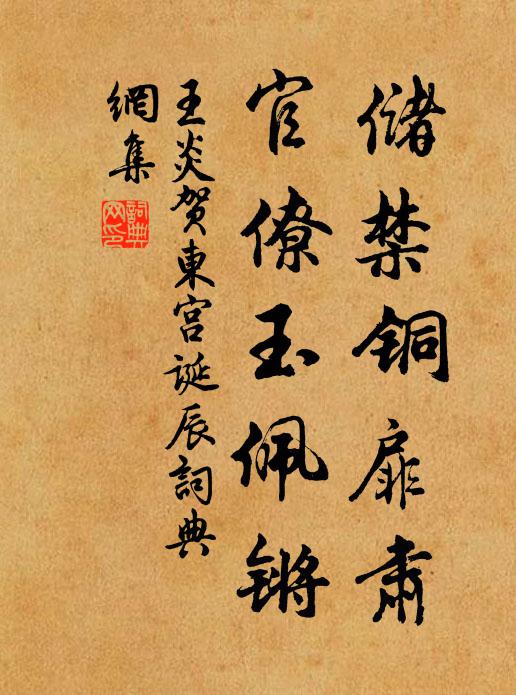 儲禁铜扉肃
官僚玉佩锵
王炎贺東宫誕辰詞典
網集
詞典
网印